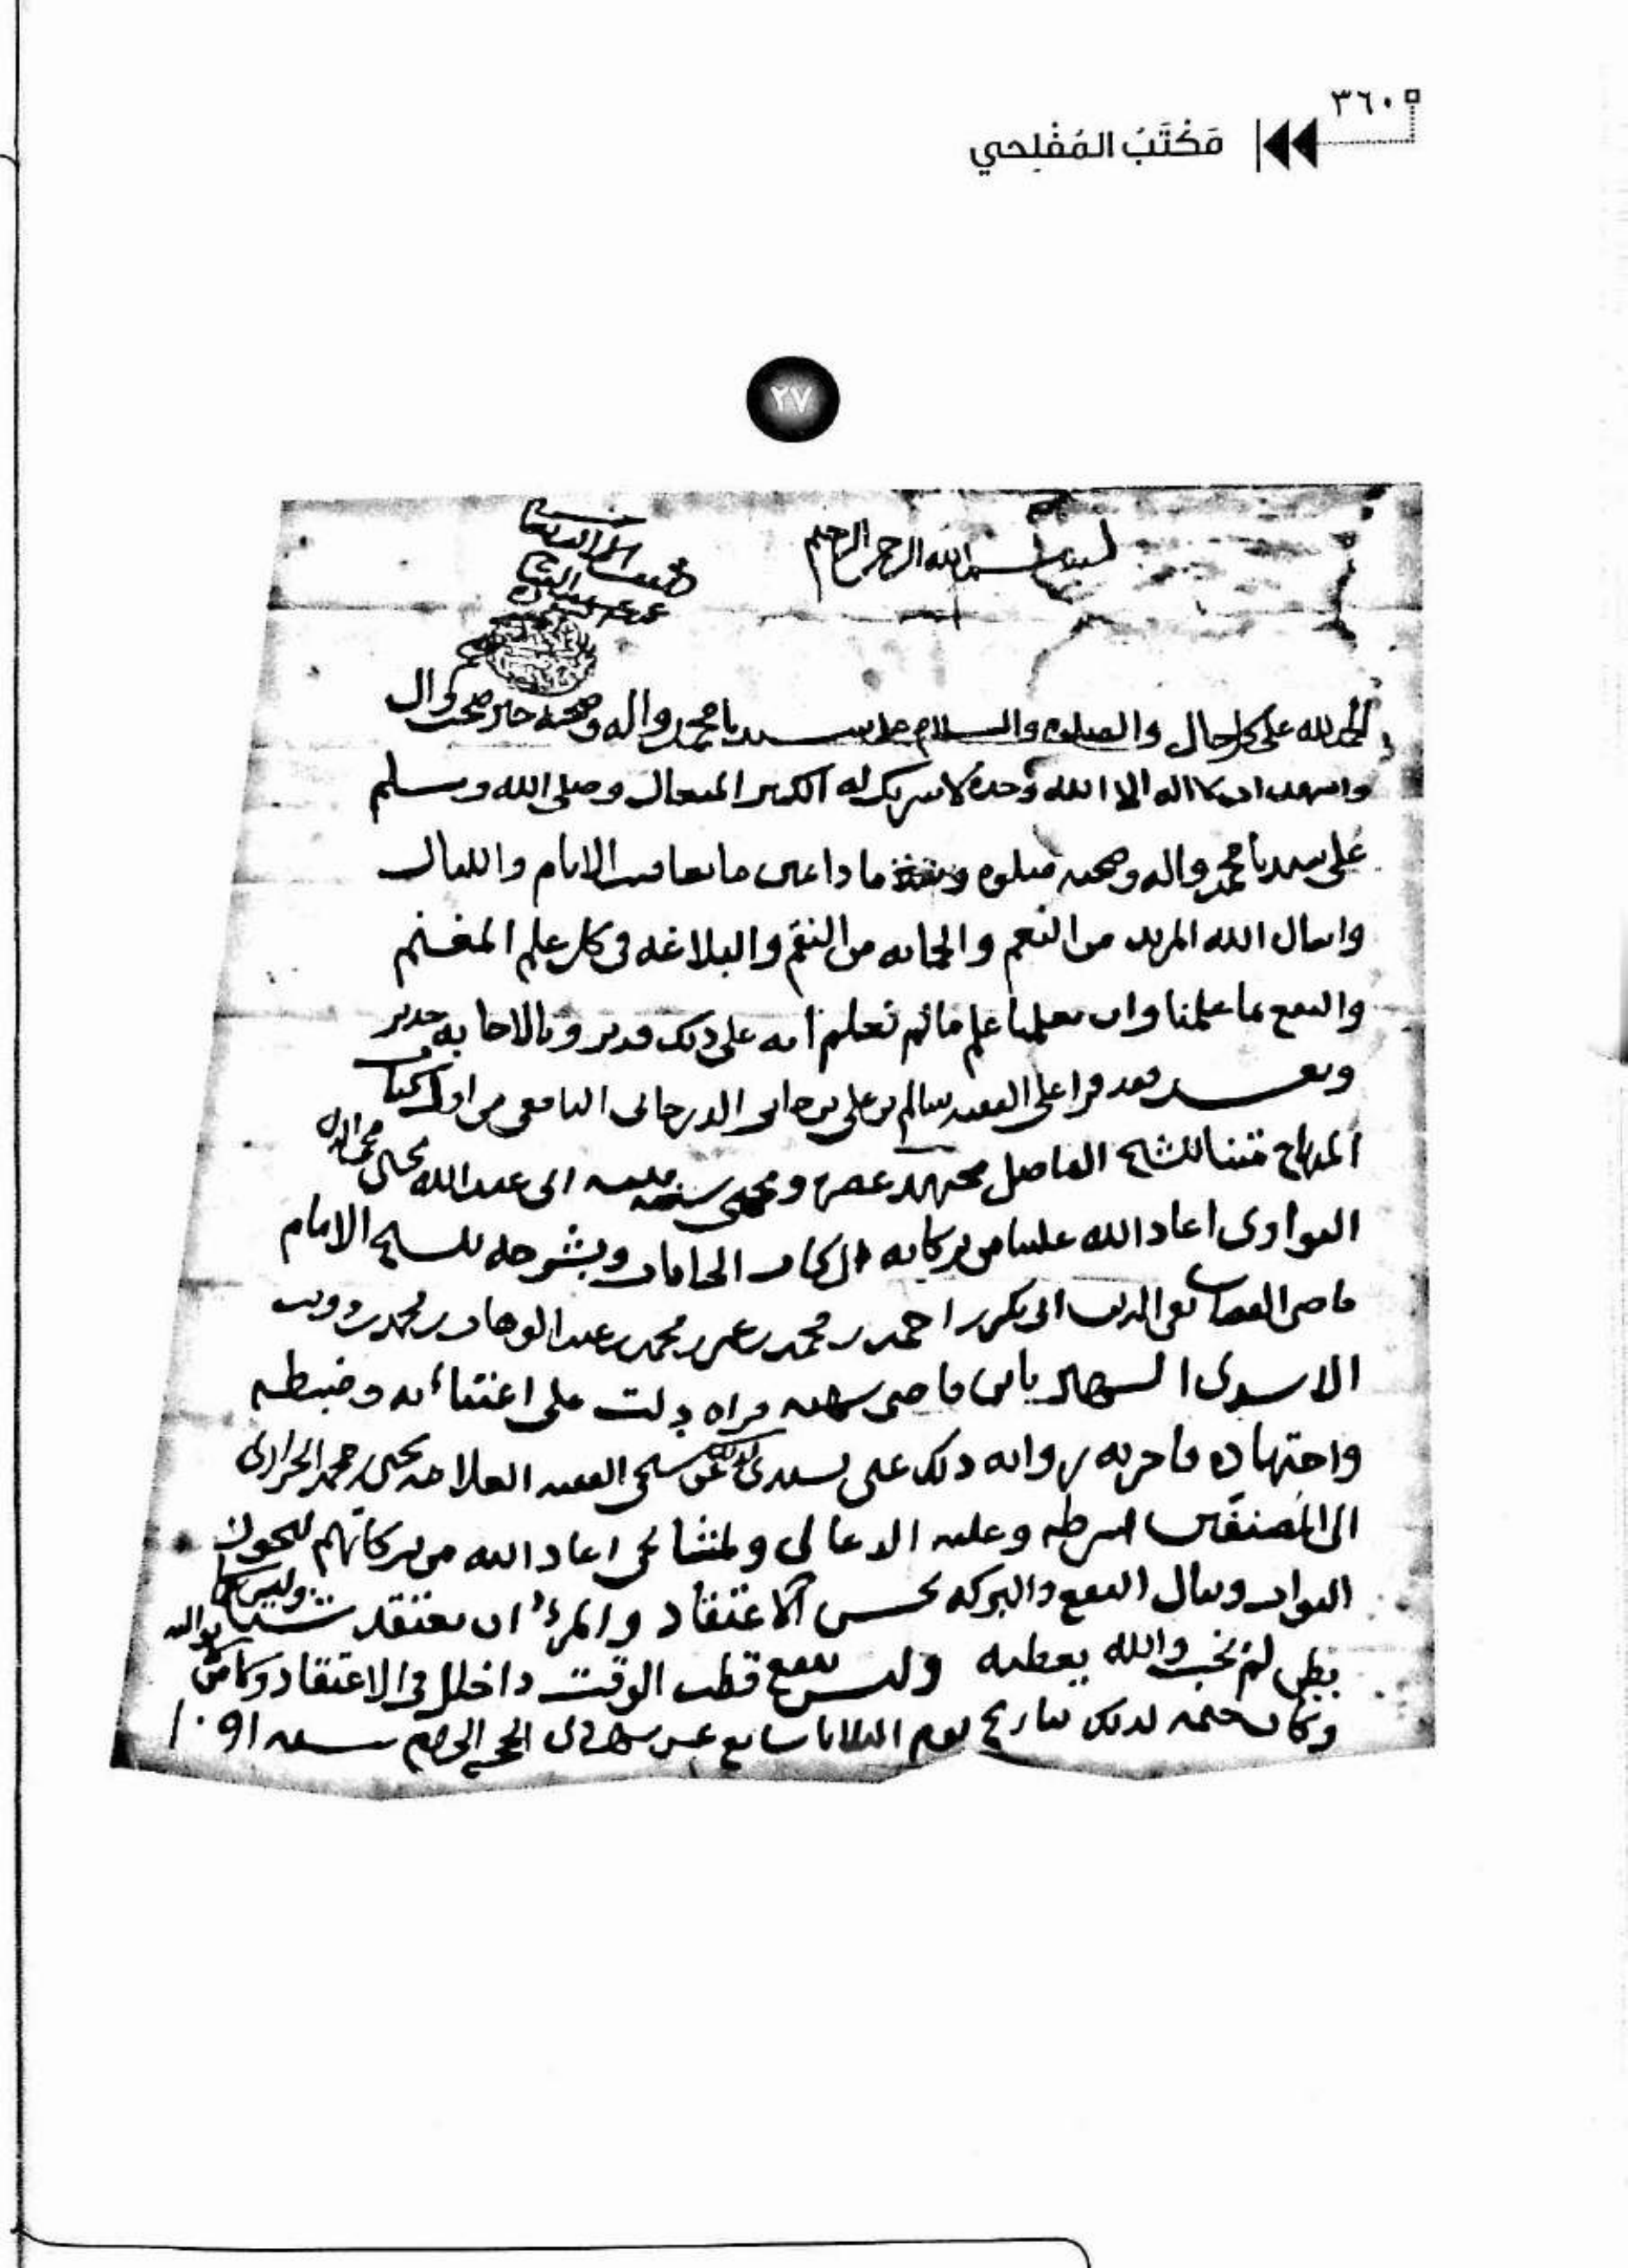 ٣٦٠
مَكْتَبُ المُفْلِحي
٢٧
بسم الله الرحمن الرحيم
الحمد لله على كل حال والصلوه والسلام على سيدنا محمد واله وصحبه خير صحب وال
واشهد ان لا اله الا الله وحده لا شريك له الكبير المتعال وصلى الله وسلم
على سيدنا محمد واله وصحبه صلوة دائمين ما تعاقبت الايام والليال
واسال الله المزيد من النعم والنجاه من النقم والبلاغه في كل علم المغنم
والنفع بما علمنا وان يعلمنا علم مالم نعلم انه على ذلك قدير وبالاجابه جدير
وبعد فقد قرا علي الفقيه سالم بن علي بن الشافعي من اول كتاب
المنهاج متنا للشيخ الفاضل مجتهد عصره ومحيي سنة نبيه ابي عبدالله يحيى محي الدين
النواوي اعاد الله علينا من بركاته وبشرحه للشيخ الامام
قاضي القضاه تقي الدين ابي بكر بن احمد بن محمد بن عمر بن محمد بن عبدالوهاب بن محمد بن ذويب
الاسدي الشهير بابن قاضي شهبه قراه دلت على اعتنائه وضبطه
واجتهاده فاجزته روايه ذلك عني بسندي عن شيخي الفقيه العلامه يحيى بن محمد الحرازي
الى المصنفين بشرطه وعليه الدعا لي ولمشايخي اعاد الله من بركاتهم
الثواب وينال النفع والبركه بحسن الاعتقاد والمرء ان يعتقد شيئا وليس كما
يظن لم يخب والله يعطيه وليس ينفع قطب الوقت ذا خلل في الاعتقاد
وكان ختمه لذلك بتاريخ يوم الثلاثا سابع عشر شهر الحجه الحرام سنه ١٠٩١